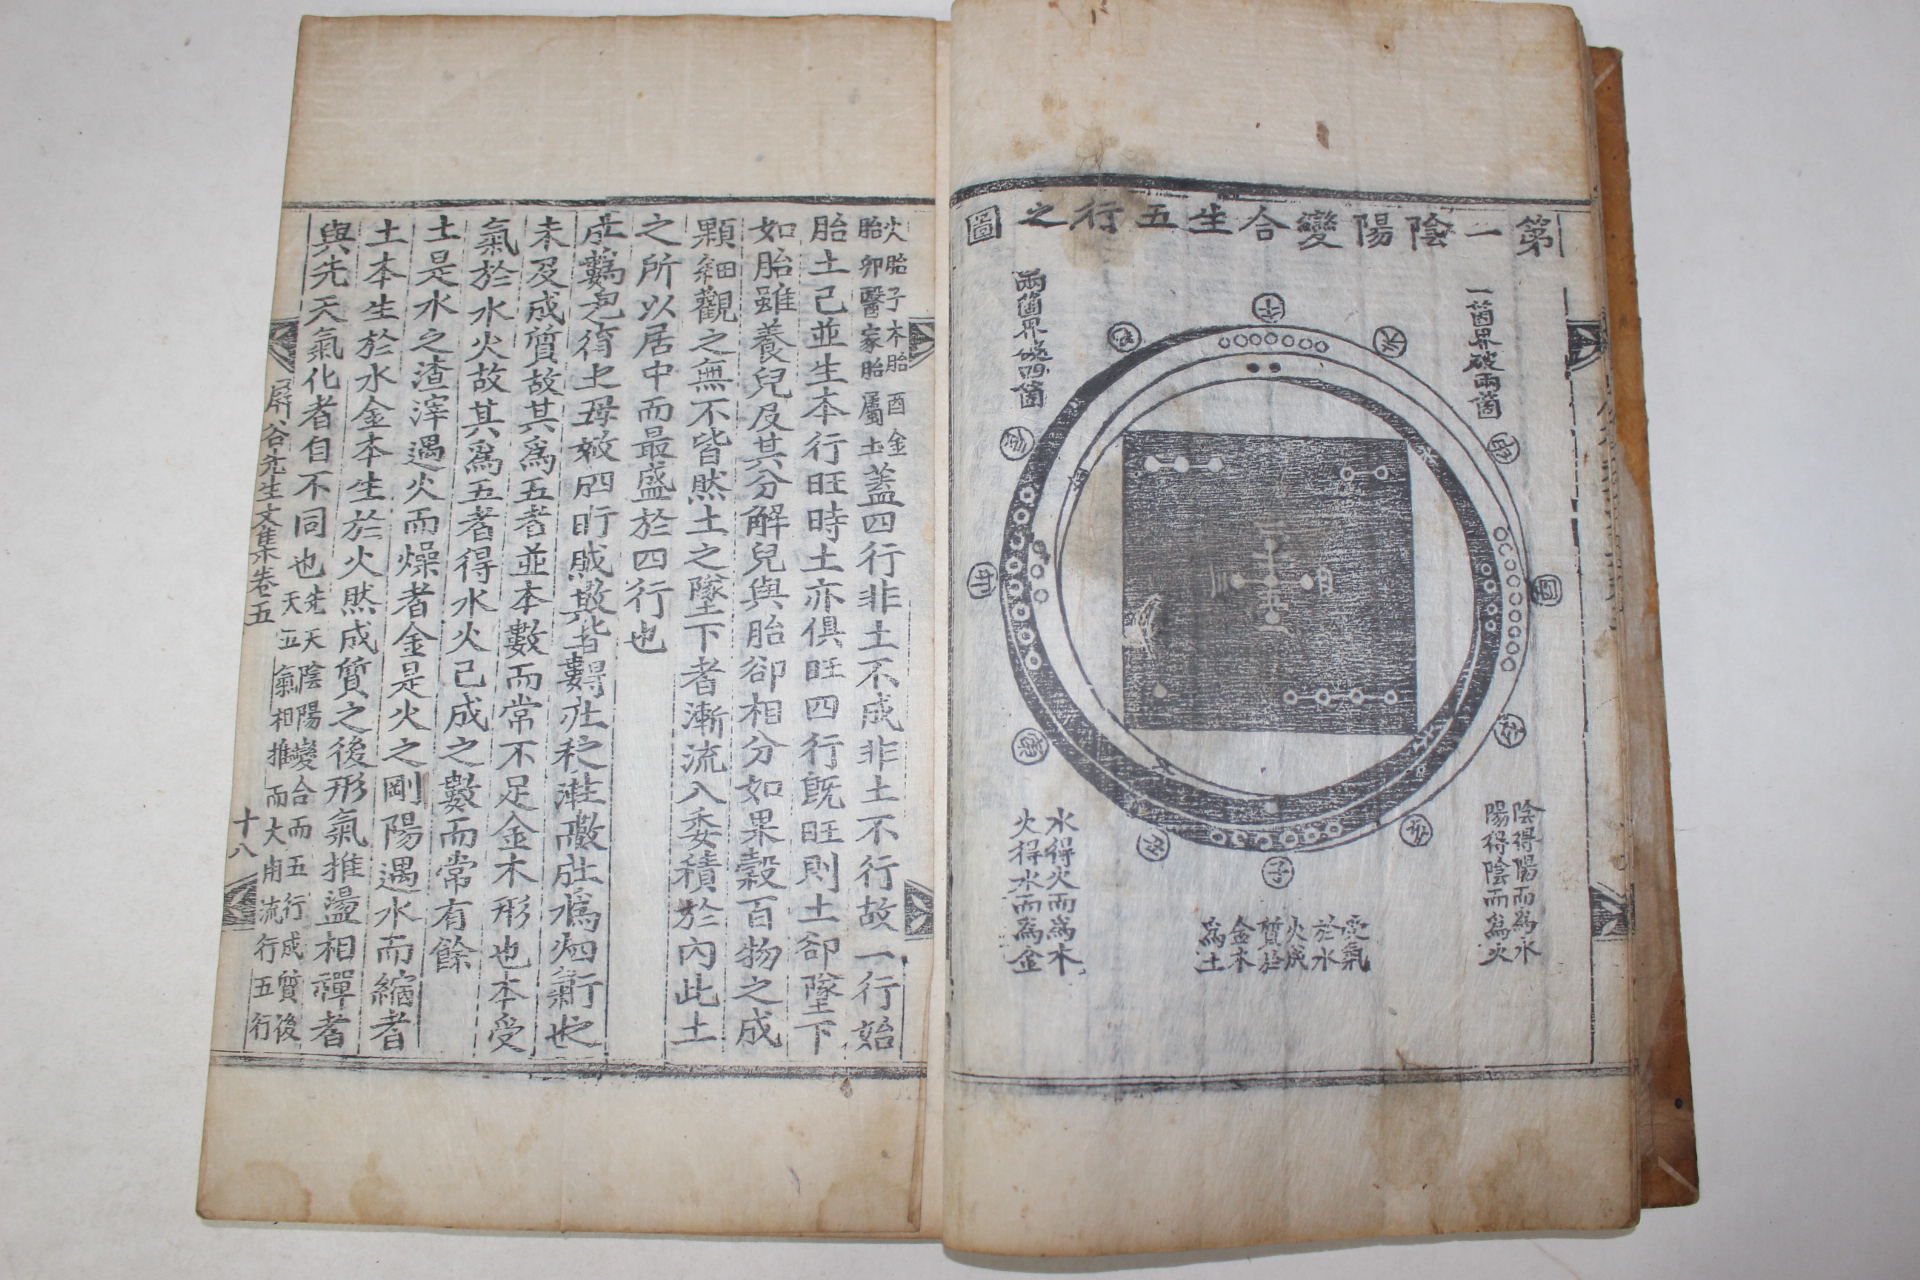 第一陰陽變合生五行之圖
一箇界破兩箇
兩箇界破四箇
陰得陽而爲水
陽得陰而爲火
受氣
於水
火成
質於
金木
爲土
水得火而爲木
火得水而爲金
午
酉
子
火胎子本胎酉金
胎卯醫家胎屬土
蓋四行非土不成非土不行故一行始
胎土已並生本行旺時土亦俱旺四行旣旺則土卻墜下
如胎雖養兒及其分解兒與胎卻相分如果穀百物之成
顆細觀之無不皆然土之墜下者漸流入委積於內此土
之所以居中而最盛於四行也
未及成質故其爲五者並本數而常不足金木形也本受
氣於水火故其爲五者得水火已成之數而常有餘
土是水之渣滓遇火而燥者金是火之剛陽遇水而縮者
土本生於水金本生於火然成質之後形氣推盪相禪者
與先天氣化者自不同也
先天陰陽變合而五行成質後
天五氣相推而大用流行五行
屛谷先生文集卷五
十八